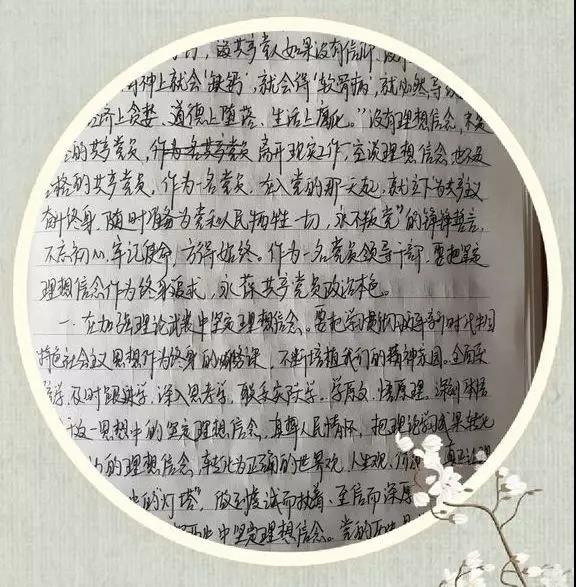 该共产党人如果没有信仰、
精神上就会"缺钙",就会得"软骨病",就必然导致
经济上贪婪、道德上堕落、生活上腐化。"没有理想信念,不是
的共产党员,作为一名共产党员 离开现实工作,空谈理想信念,也不是
合格的共产党员,作为一名党员,在入党的那天起,就立下为共产主义
奋斗终身,随时准备为党和人民牺牲一切,永不叛党"的铮铮誓言,
不忘初心,牢记使命,方得始终。作为一名党员领导干部,要把坚定
理想信念作为终身追求,永葆共产党员政治本色。
一、在加强理论武装中坚定理想信念。要把学习贯彻习近平新时代中国
特色社会主义思想作为终身的必修课,不断培植我们的精神家园。全面系
统学、及时跟进学、深入思考学、联系实际学,学原文、悟原理,深刻体悟
这一思想中的坚定理想信念、真挚人民情怀,把理论学习成果转化
的理想信念、转化为正确的世界观、人生观、价值观,真正让
中的"灯塔",做到虔诚而执着、至信而深厚
历史中坚定理想信念。党的历史